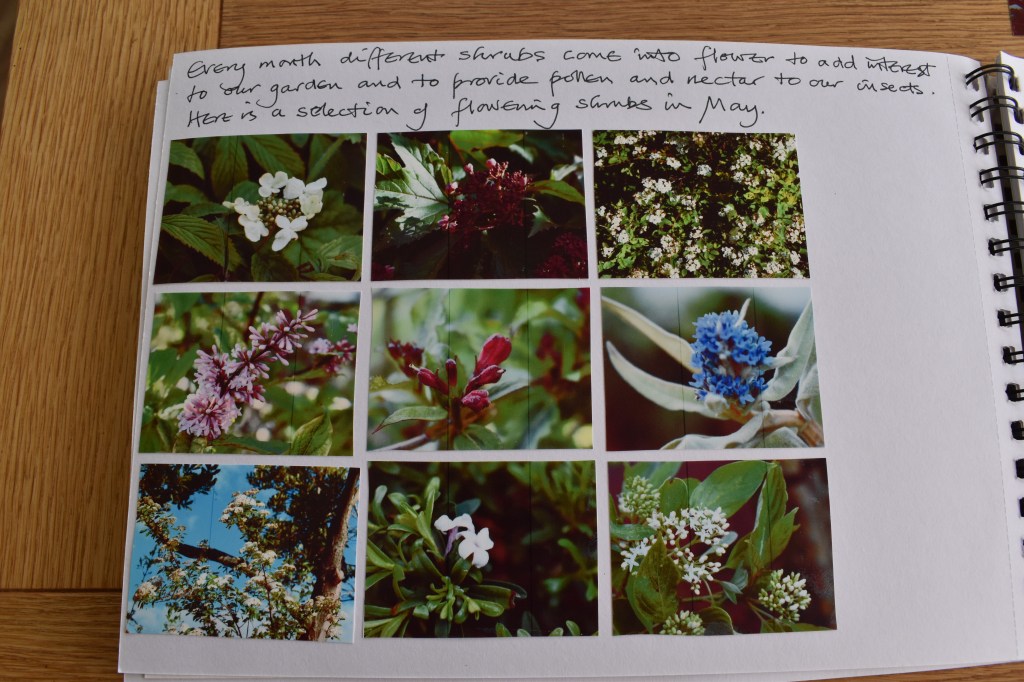 Every month different shrubs come into flower to add interest
to our garden and to provide pollen and nectar to our insects.
Here is a selection of flowering shrubs in May.